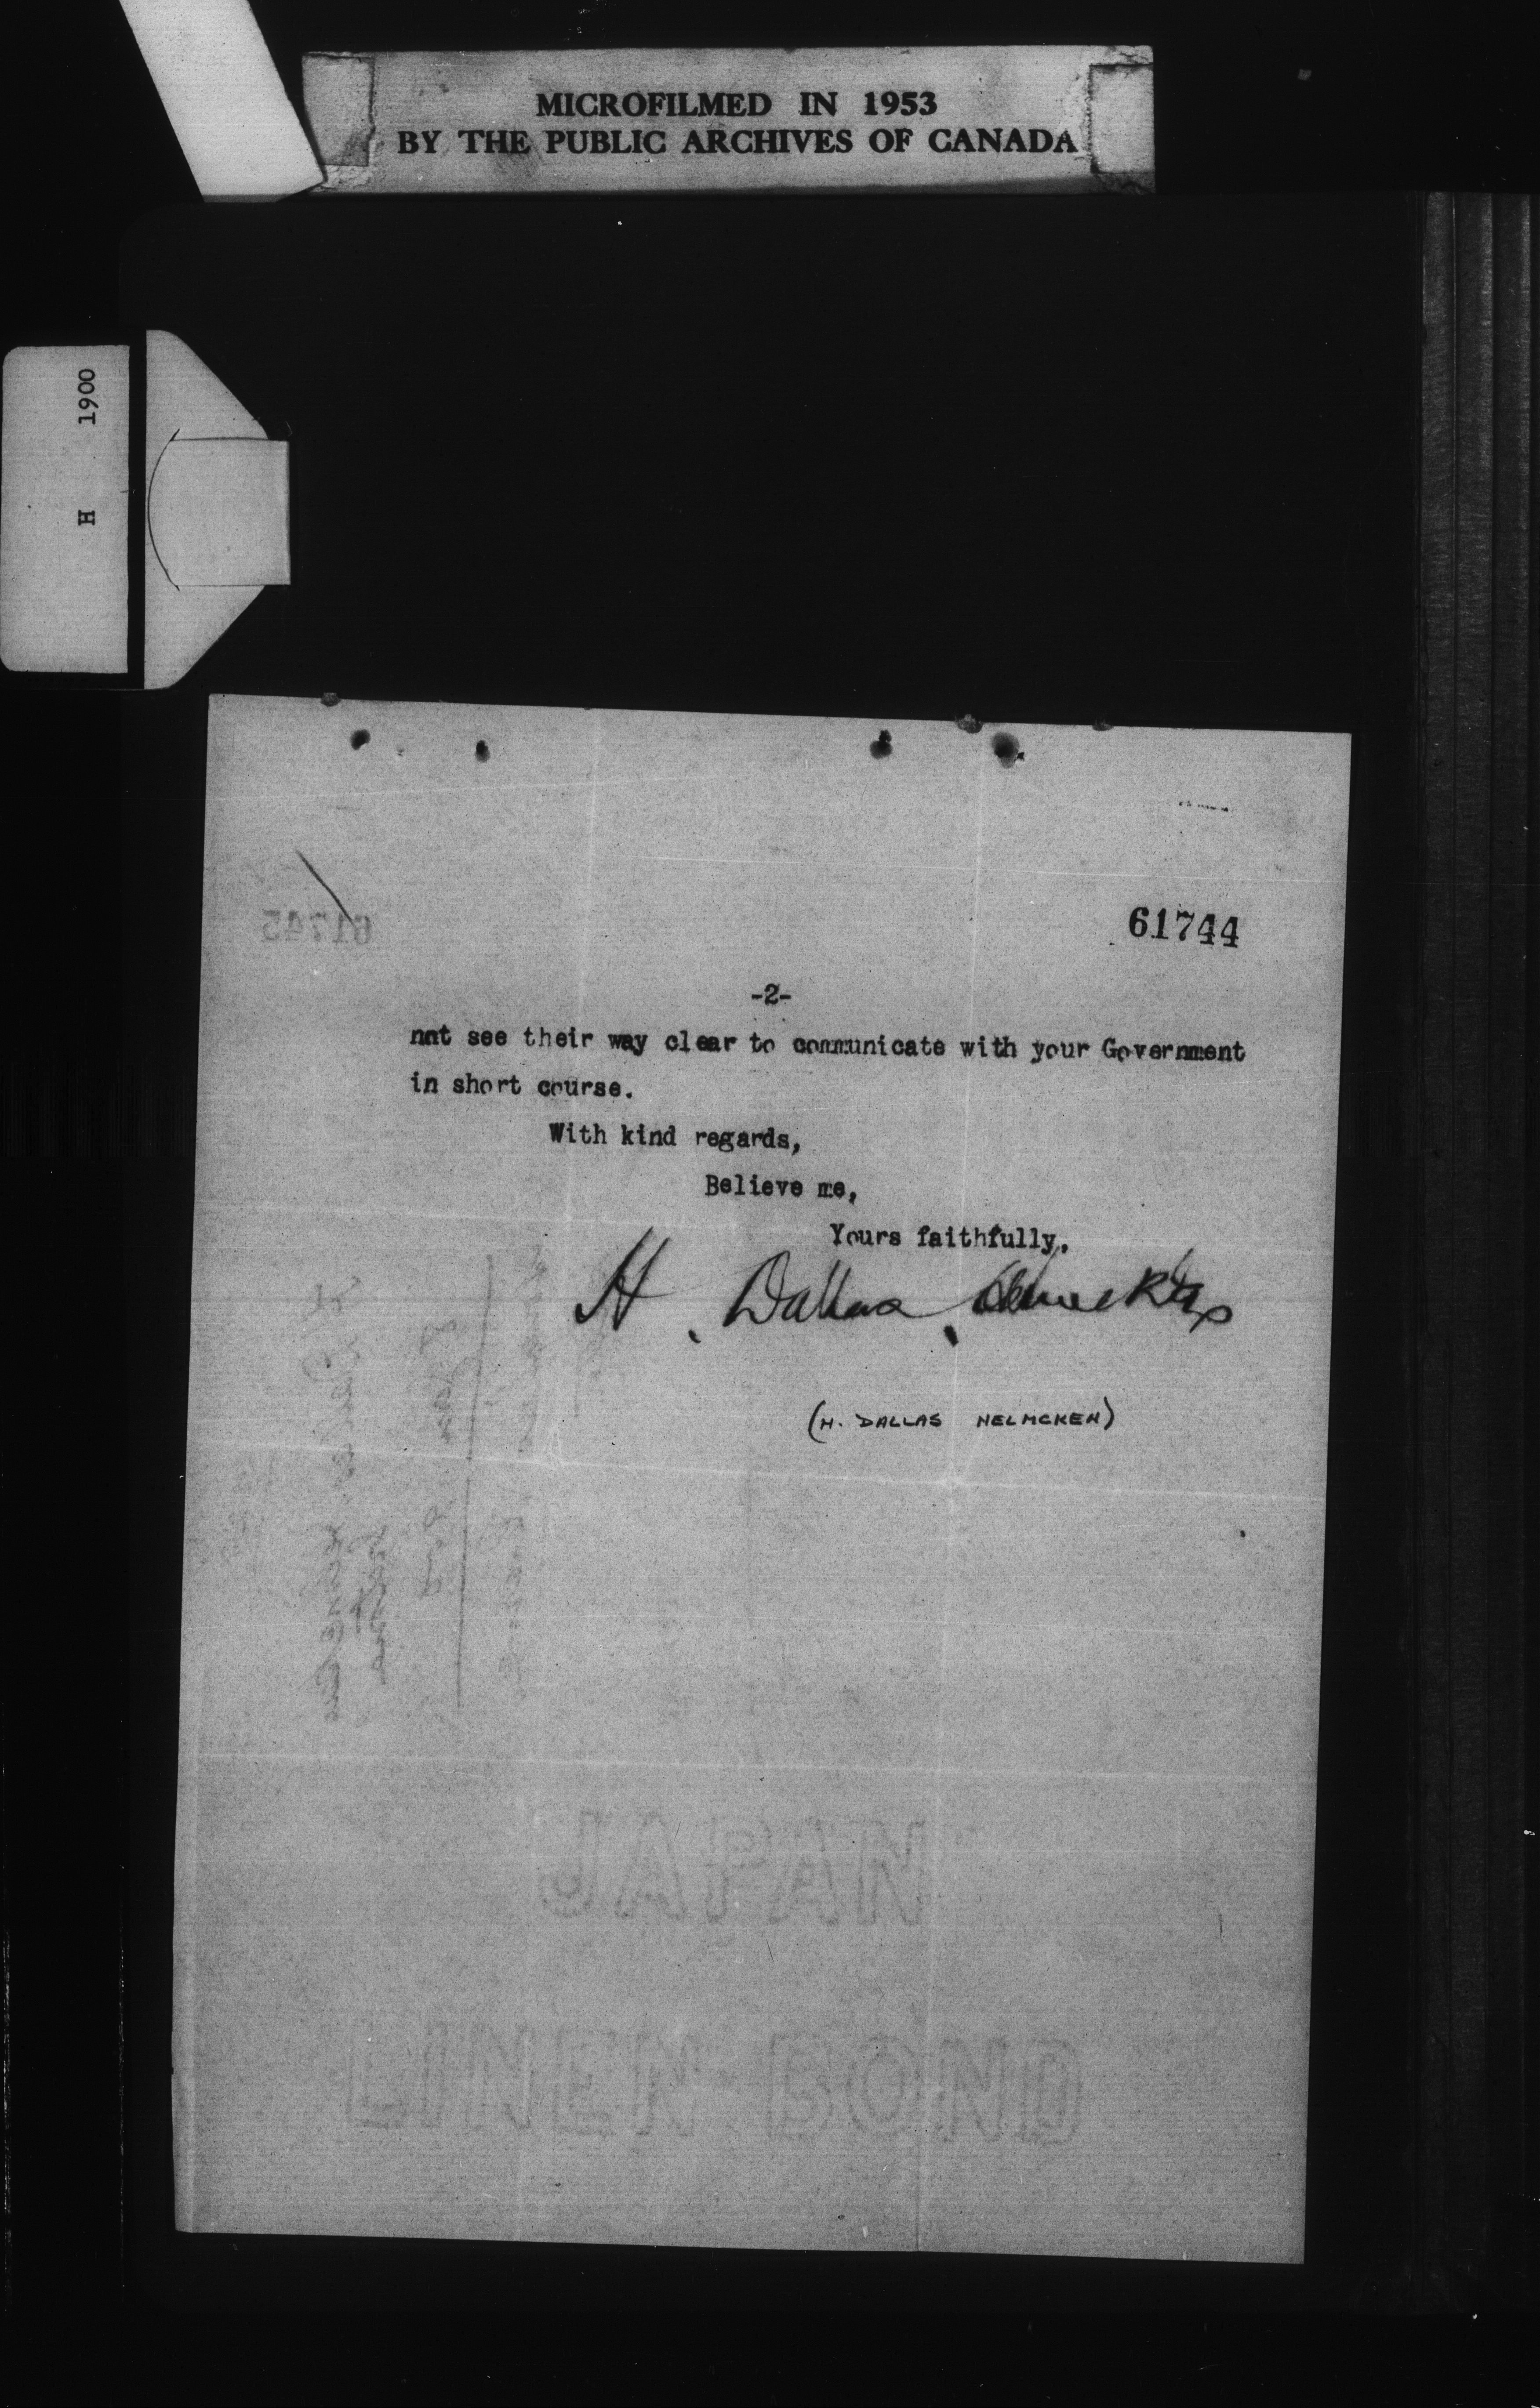 MICROFILMED IN 1953
BY THE PUBLIC ARCHIVES OF CANADA
H 1900
61745
61744
-2-
not see their way clear to communicate with your Government
in short course.
With kind regards,
Believe me,
Yours faithfully,
H. Dallas Helmcken
(H. DALLAS HELMCKEN)
JAPAN
LINEN BOND